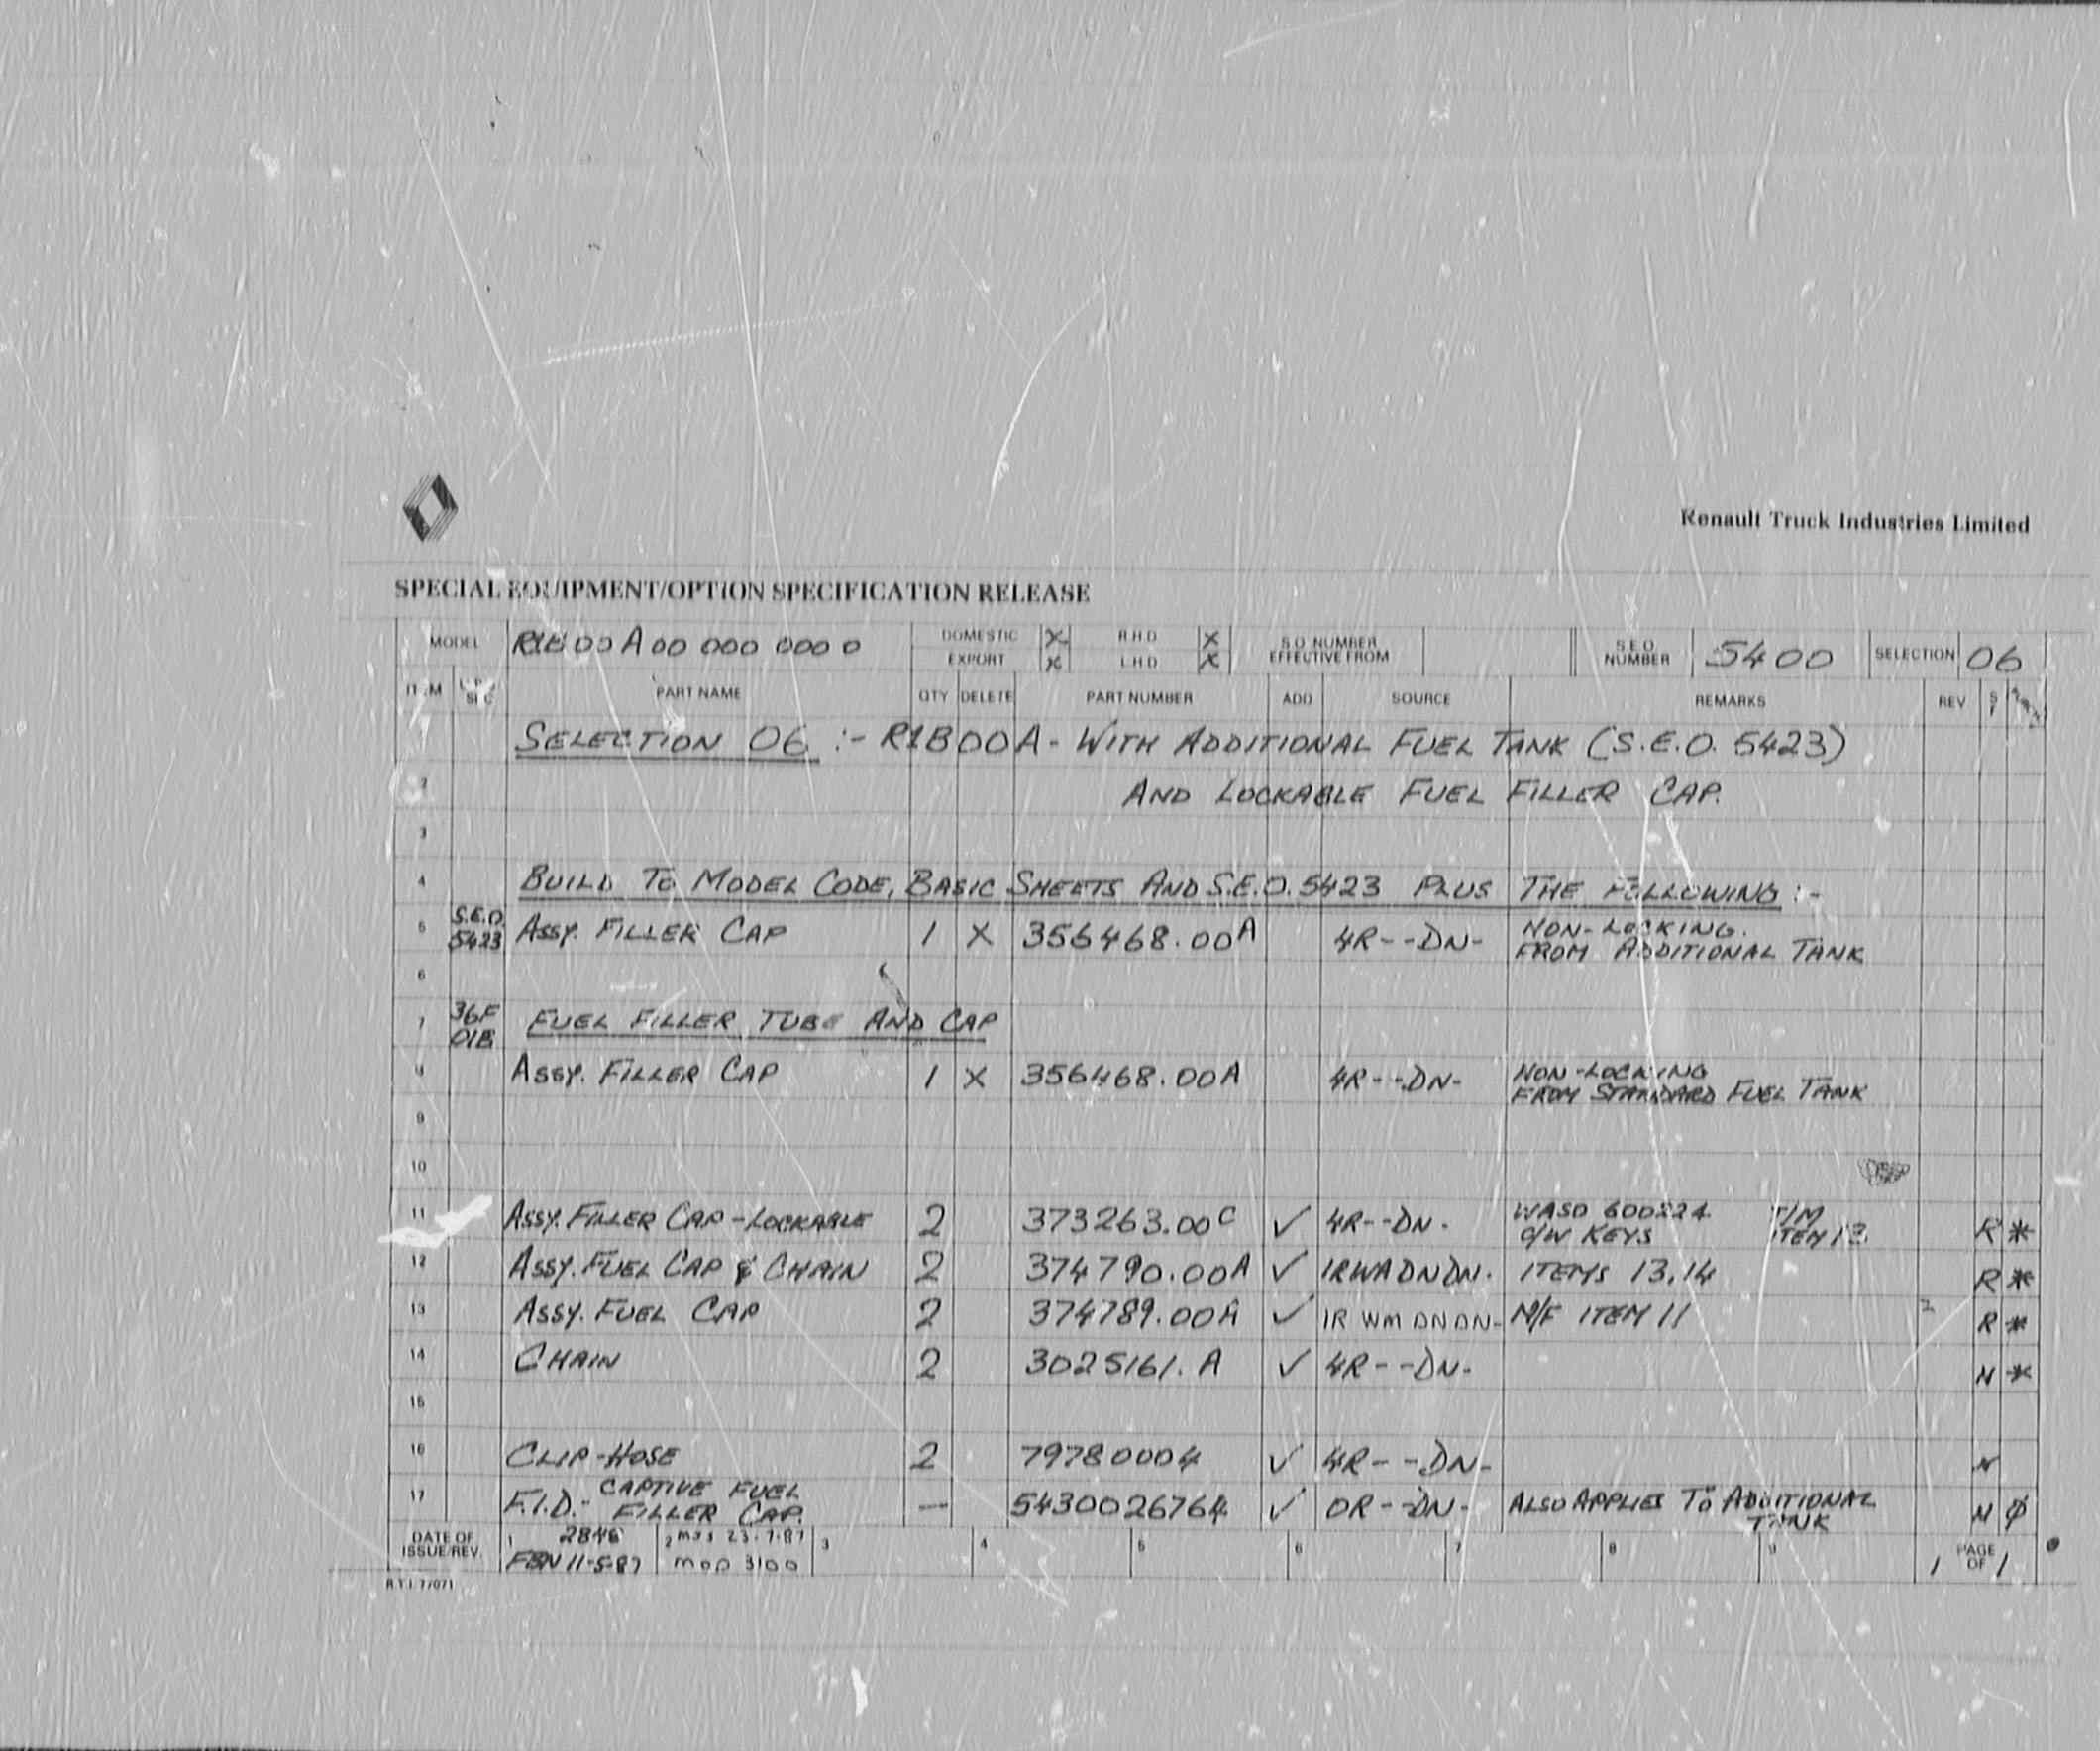 Renault Truck Industries Limited
SPECIAL EQUIPMENT/OPTION SPECIFICATION RELEASE
MODEL R1B00A00 000 000 0 DOMESTIC X R.H.D X S.O. NUMBER EFFECTIVE FROM S.E.O NUMBER 5400 SELECTION 06
EXPORT X L.H.D X
ITEM PART NAME QTY DELETE PART NUMBER ADD SOURCE REMARKS REV
SELECTION 06 :- R1B00A - WITH ADDITIONAL FUEL TANK (S.E.O. 5423)
2 AND LOCKABLE FUEL FILLER CAP.
3
4 BUILD TO MODEL CODE, BASIC SHEETS AND S.E.O. 5423 PLUS THE FOLLOWING :-
5 S.E.O. 5423 ASSY. FILLER CAP 1 X 356468.00A 4R--DN- NON-LOCKING. FROM ADDITIONAL TANK
6
7 36F 01B FUEL FILLER TUBE AND CAP
8 ASSY. FILLER CAP 1 X 356468.00A 4R--DN- NON-LOCKING FROM STANDARD FUEL TANK
9
10
11 ASSY. FILLER CAP - LOCKABLE 2 373263.00C ✓ 4R--DN- WASO C/W KEYS ITEM 13 R *
12 ASSY. FUEL CAP & CHAIN 2 374790.00A ✓ 1RWADNDN- ITEMS 13,14 R *
13 ASSY. FUEL CAP 2 374789.00A ✓ 1R WM DNDN- M/F ITEM 11 2 R *
14 CHAIN 2 3025161.A ✓ 4R--DN- N *
15
16 CLIP-HOSE 2 79780004 ✓ 4R--DN- N
17 F.I.D.- CAPTIVE FUEL FILLER CAP. — 5430026764 ✓ 0R--DN- ALSO APPLIES TO ADDITIONAL TANK N Ø
DATE OF ISSUE/REV. 1 2846 11-5-87 2 23.7.87 MOD 3100 3 4 5 6 7 8 9 1 PAGE OF 1
R.T.I. 77071